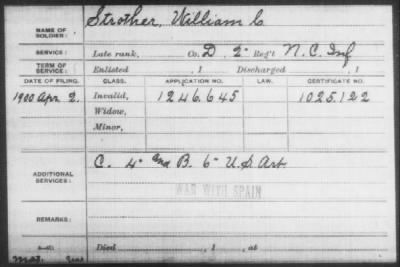 NAME OF SOLDIER: Strother, William C.
SERVICE: Late rank, Co. D 2" Reg't N.C. Inf
TERM OF SERVICE: Enlisted , 1 Discharged , 1
DATE OF FILING. CLASS. APPLICATION NO. LAW. CERTIFICATE NO.
1900 Apr 2. Invalid, 1246.645 1025.122
Widow,
Minor,
ADDITIONAL SERVICES: C. 4" and B. 6" U.S. Art.
WAR WITH SPAIN
REMARKS:
Died , 1 , at